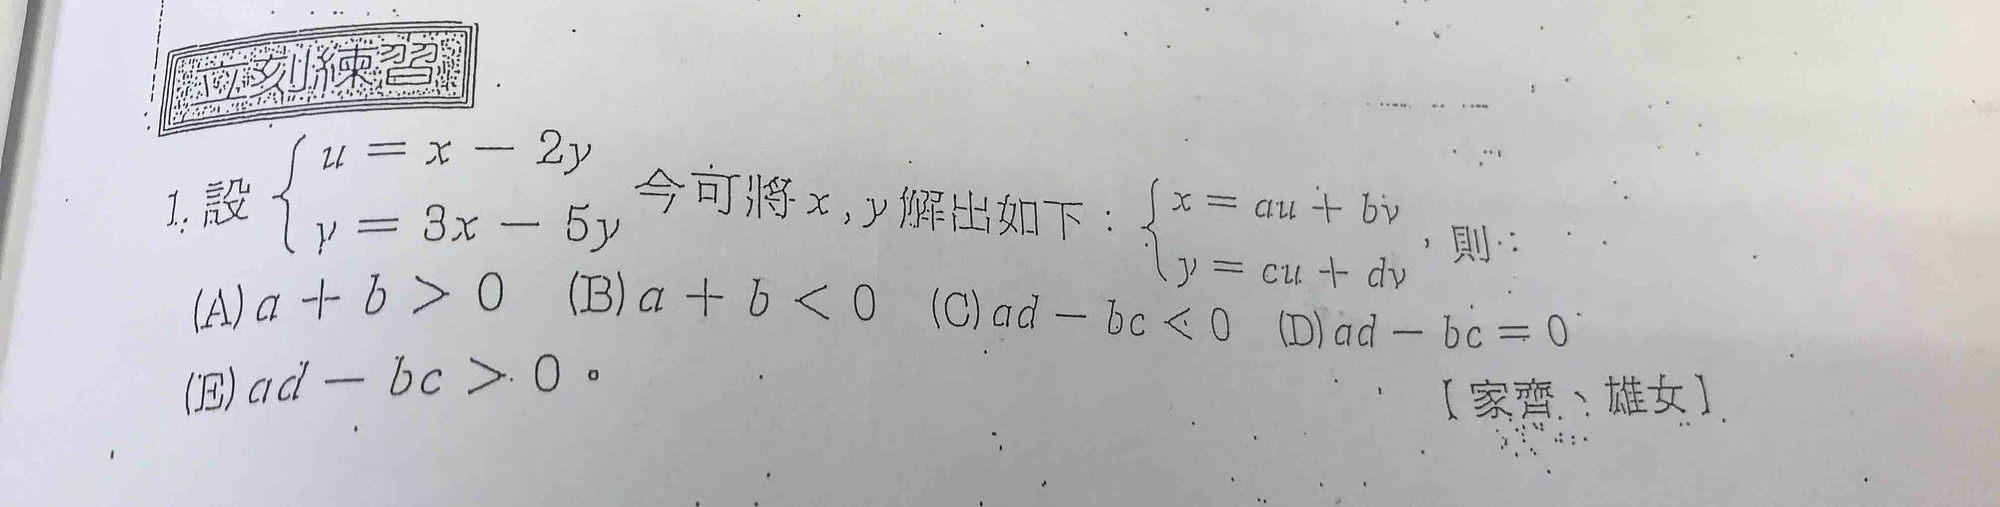 立刻練習
1. 設 { u = x − 2y
v = 3x − 5y 今可將 x, y 解出如下: { x = au + bv
y = cu + dv , 則:
(A) a + b > 0 (B) a + b < 0 (C) ad − bc < 0 (D) ad − bc = 0
(E) ad − bc > 0。
【家齊、雄女】